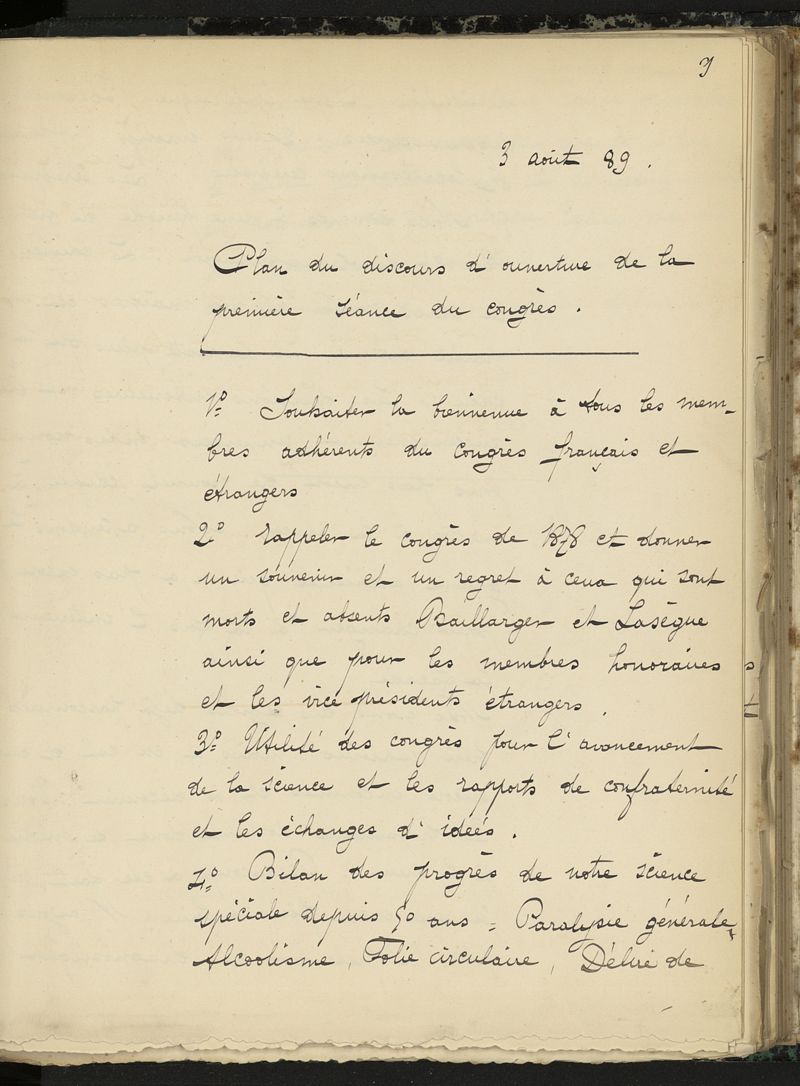 3 août 89.
Plan du discours d'ouverture de la
première séance du congrès.
1º Souhaiter la bienvenue à tous les mem-
bres adhérents du congrès français et
étrangers
2º rappeler le congrès de 1878 et donner
un souvenir et un regret à ceux qui sont
morts et absents Baillarger et Lasègue
ainsi que pour les membres honoraires
et les vice présidents étrangers.
3º Utilité des congrès pour l'avancement
de la science et les rapports de confraternité
et les échanges d'idées.
4º Bilan des progrès de notre science
spéciale depuis 50 ans = Paralysie générale,
Alcoolisme, Folie circulaire, Délire de